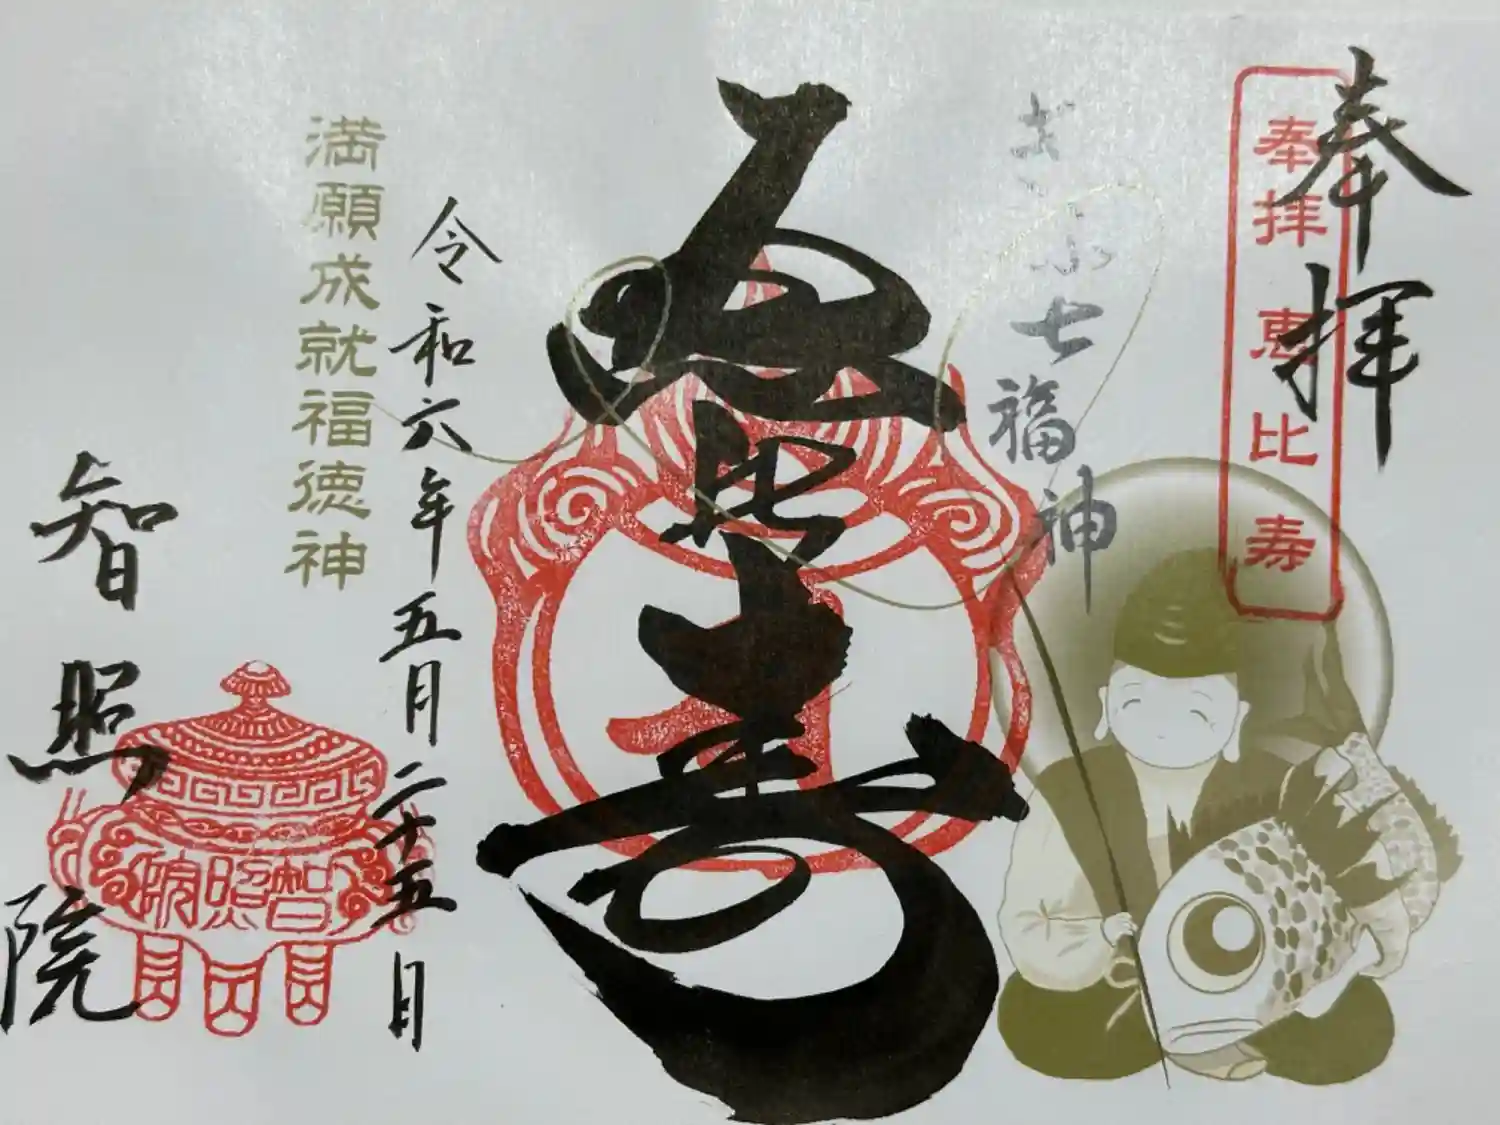 奉拝
奉拝 恵比寿
ぎふ七福神
恵比寿
令和六年五月二十五日
満願成就福徳神
智照院
智照院